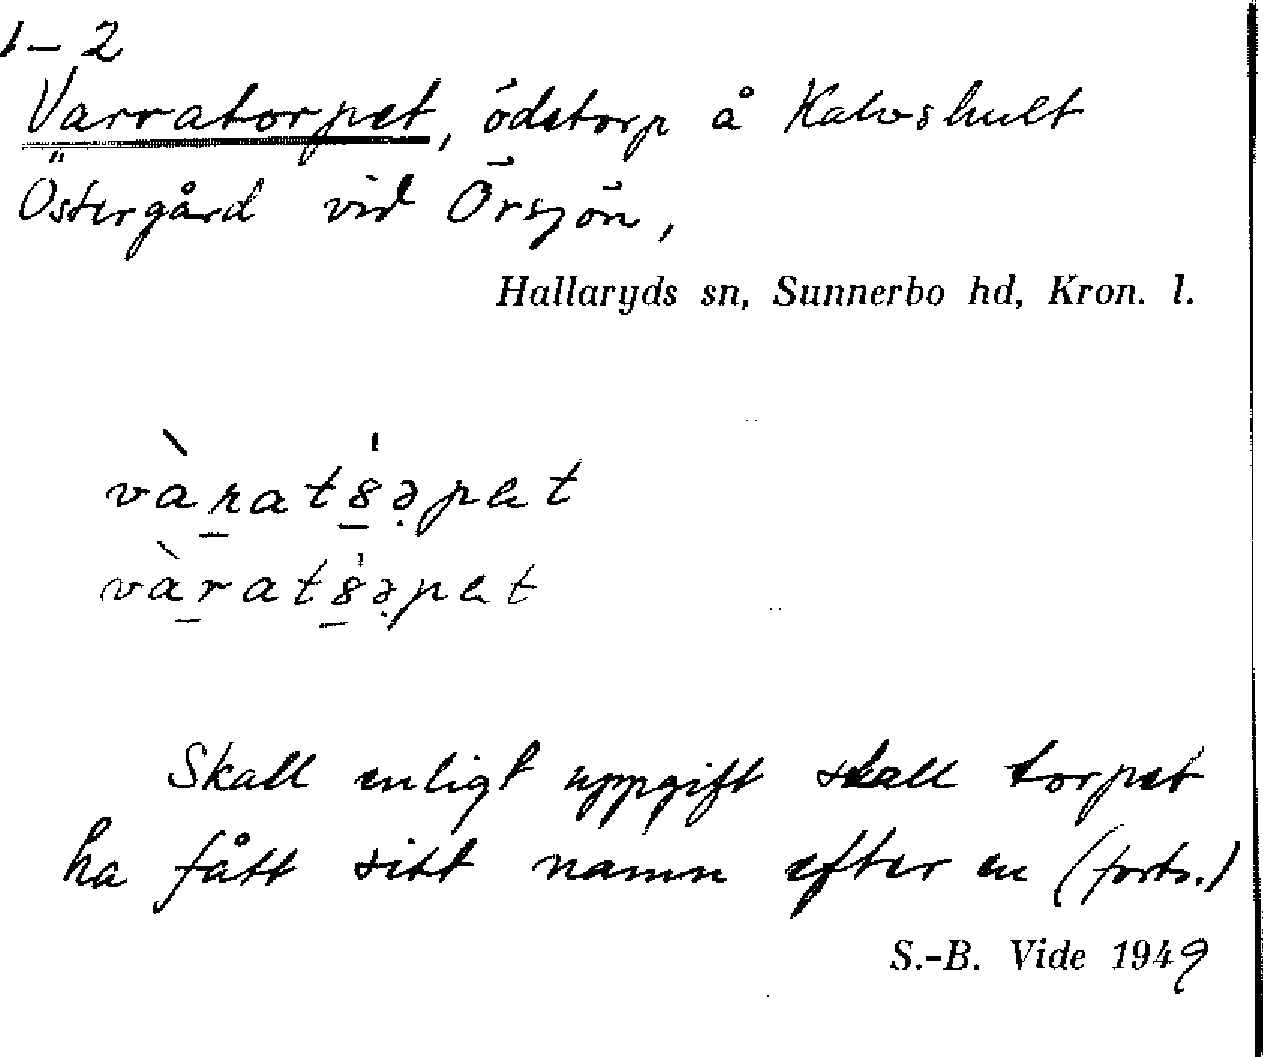 1-2
Varratorpet, ödetorp å Kalvshult
Östergård vid Örsjön,
Hallaryds sn, Sunnerbo hd, Kron. l.
Skall enligt uppgift skall torpet
ha fått sitt namn efter en (forts.)
S.-B. Vide 1949